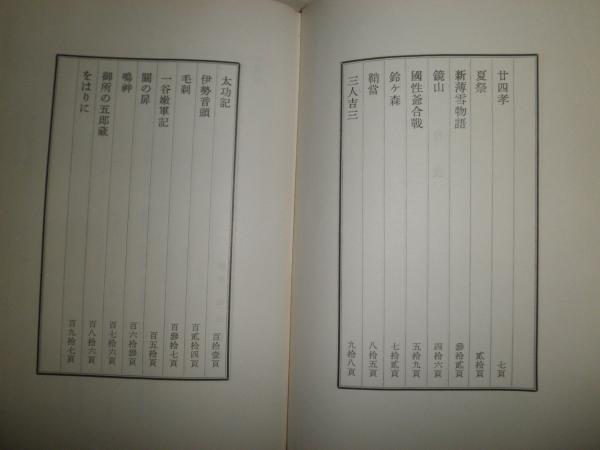 廿四孝 七頁
夏祭 貳拾頁
新薄雪物語 參拾貳頁
鏡山 四拾六頁
國性爺合戰 五拾九頁
鈴ヶ森 七拾貳頁
鞘當 八拾五頁
三人吉三 九拾八頁
太功記 百拾壹頁
伊勢音頭 百貳拾四頁
毛剃 百參拾七頁
一谷嫩軍記 百五拾頁
關の扉 百六拾參頁
鳴神 百七拾六頁
御所の五郎藏 百八拾六頁
をはりに 百九拾七頁